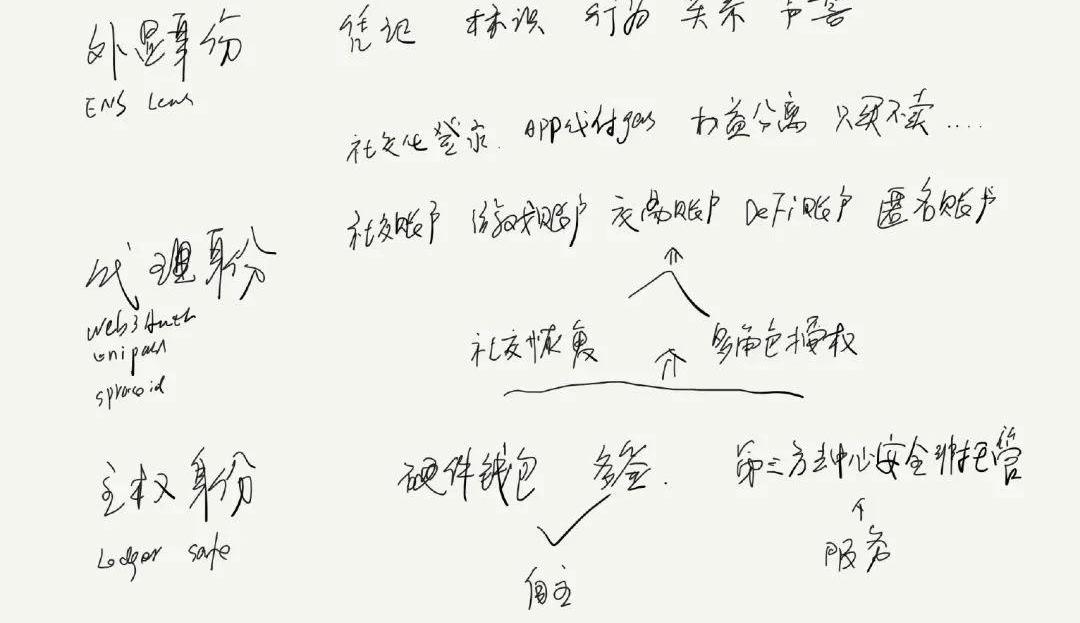 外显身份 凭记 标识 行为 关系 声誉
ENS Lens
社交化登录. APP代付gas 权益分离 只买不卖....
社交账户 游戏账户 交易账户 DeFi账户 匿名账户
代理身份
Web3Auth
unipass
社交恢复 多角色授权
主权身份 硬件钱包 多签. 第三方去中心安全 托管
Ledger safe
服务
自主